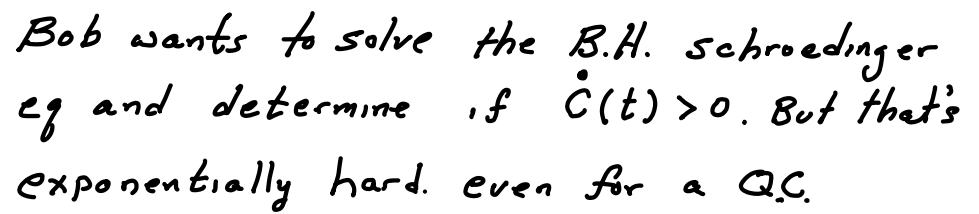 Bob wants to solve the B.H. schroedinger
eq and determine if Ċ(t) > 0. But that's
exponentially hard. even for a Q.C.